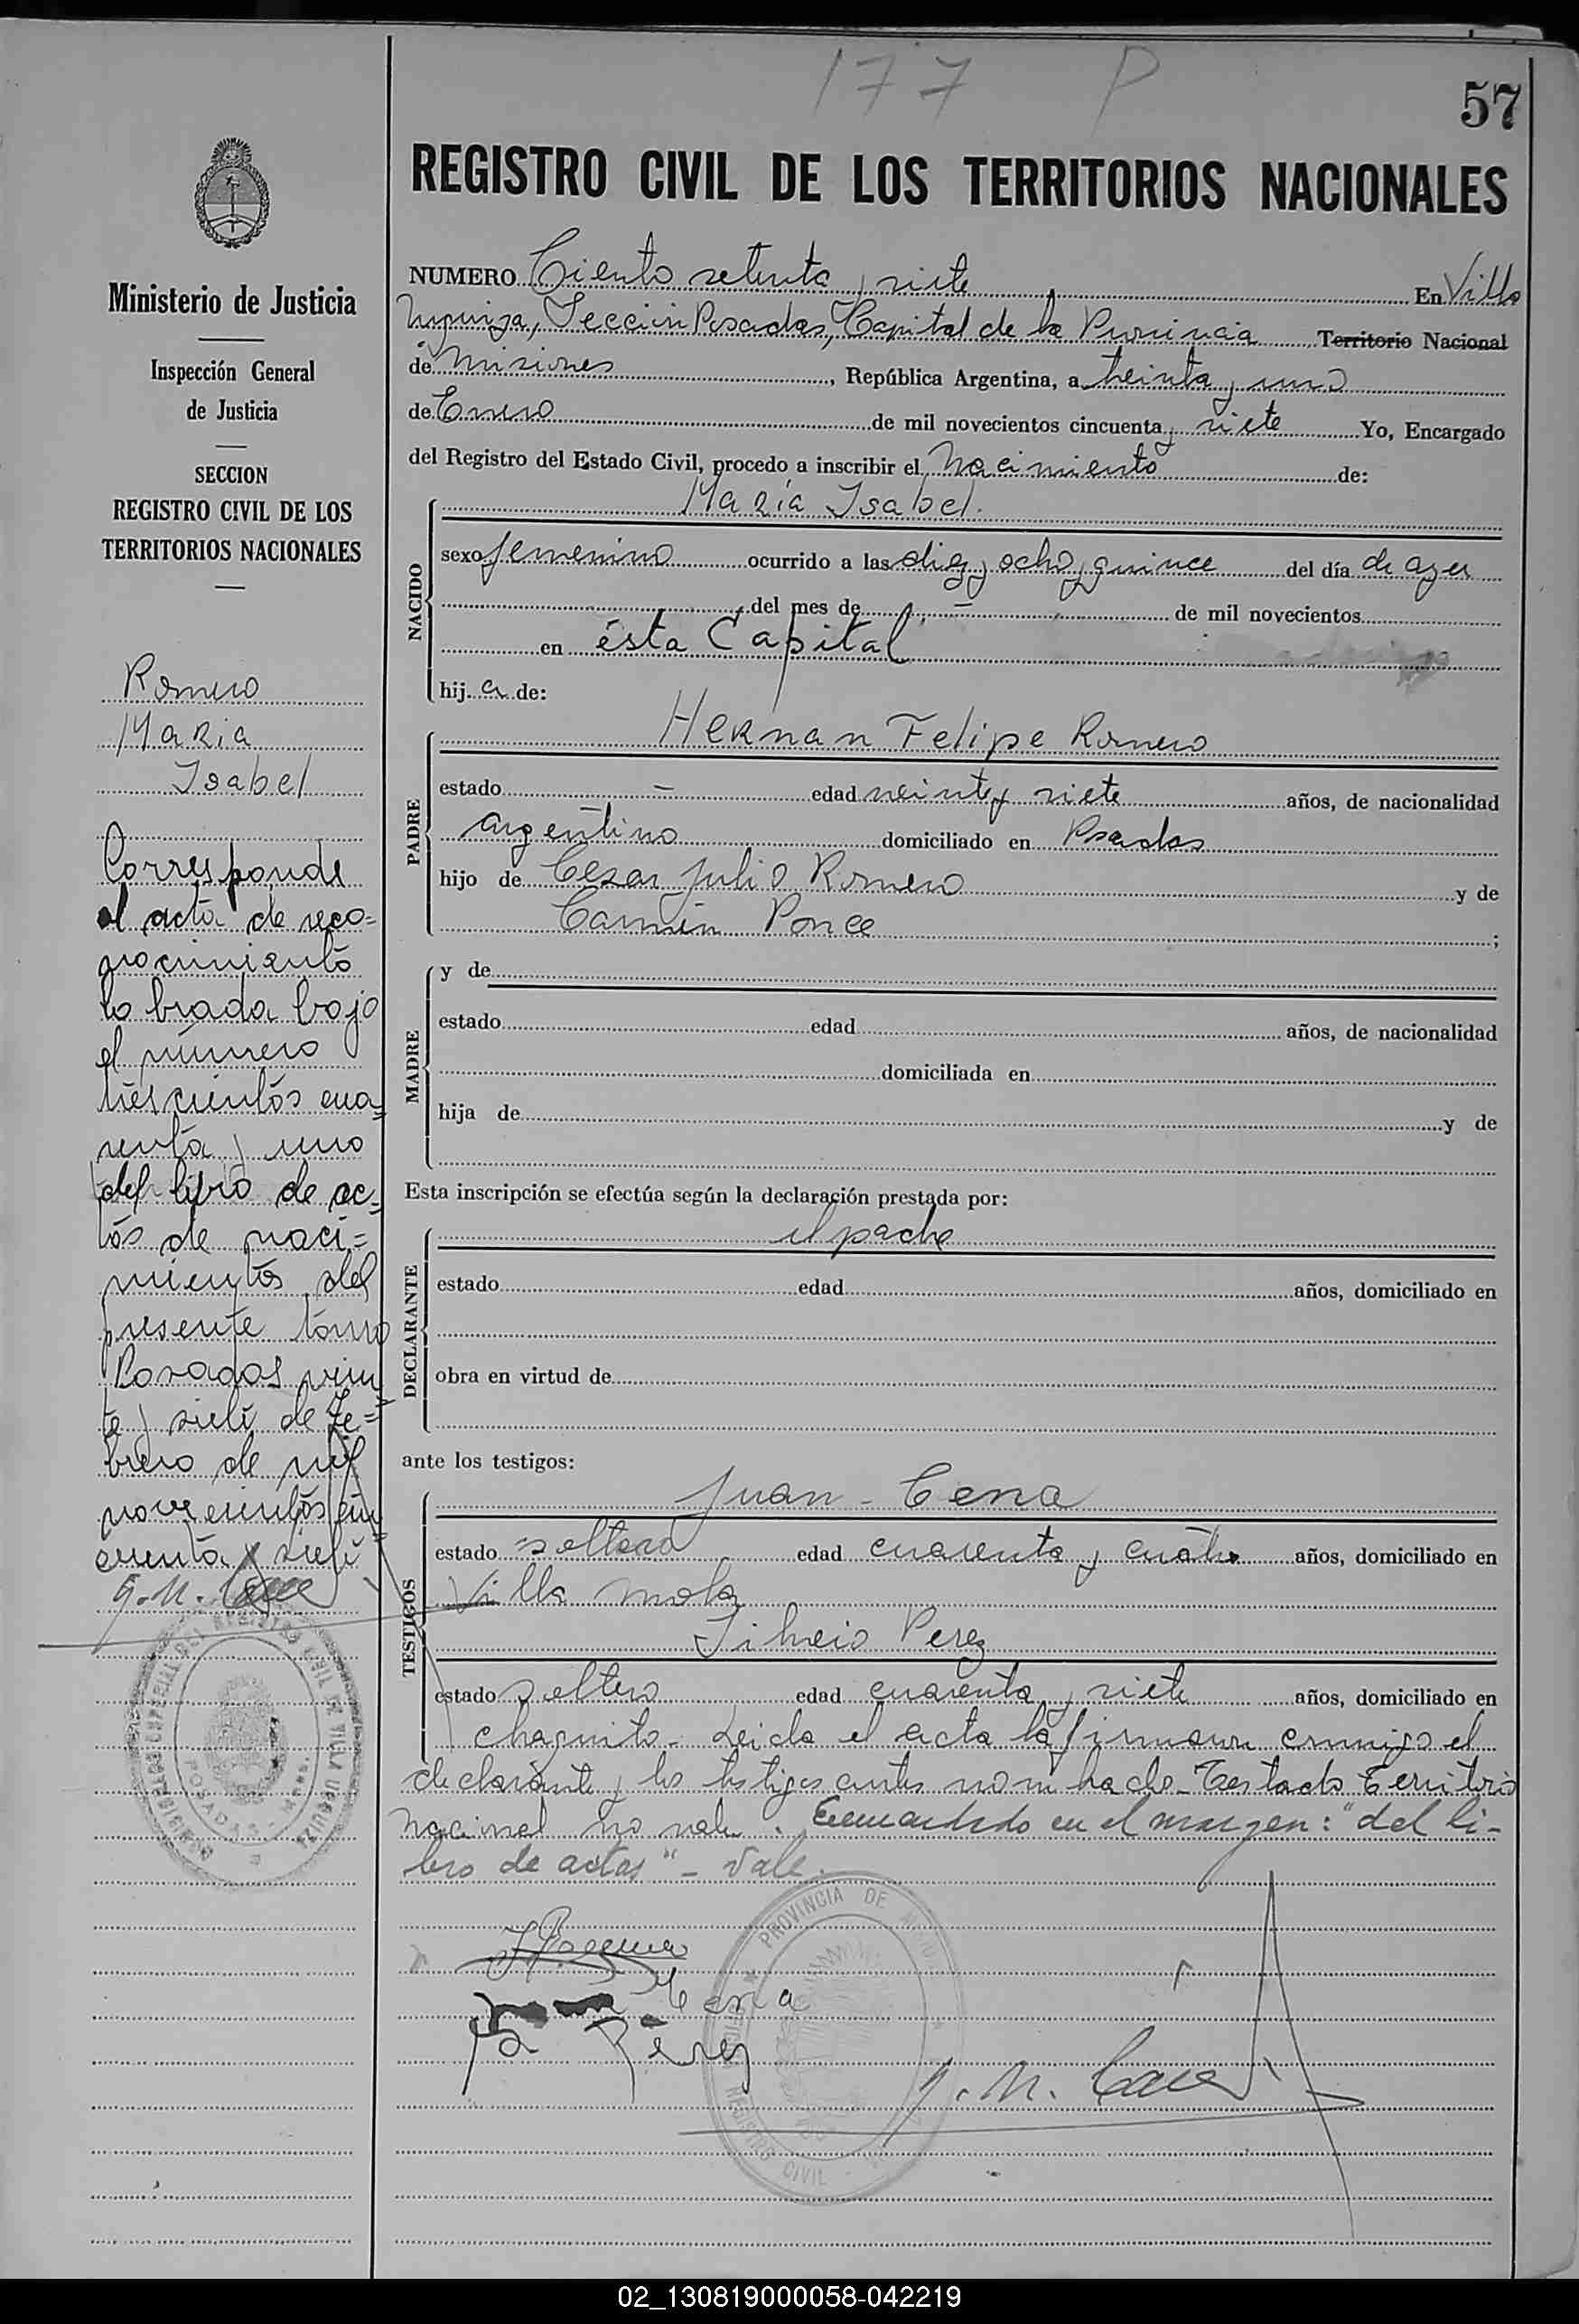 177 P
57
REGISTRO CIVIL DE LOS TERRITORIOS NACIONALES
Ministerio de Justicia
Inspección General
de Justicia
SECCION
REGISTRO CIVIL DE LOS
TERRITORIOS NACIONALES
Romero
Maria
Isabel
Corresponde
al acta de reco=
nocimiento
labrada bajo
el número
trescientos cua=
renta y uno
del libro de ac=
tos de naci=
mientos del
presente tomo
Posadas vein
te y siete de Fe=
brero de mil
novecientos cin=
cuenta y siete
NUMERO Ciento setenta y siete En Villa
Urquiza, Sección Posadas, Capital de la Provincia Territorio Nacional
de Misiones, República Argentina, a treinta y uno
de Enero de mil novecientos cincuenta y siete Yo, Encargado
del Registro del Estado Civil, procedo a inscribir el Nacimiento de:
NACIDO
Maria Isabel.
sexo femenino ocurrido a las diez y ocho y quince del día de ayer
del mes de — de mil novecientos
en ésta Capital
hij a de:
PADRE
Hernan Felipe Romero
estado — edad veinte y siete años, de nacionalidad
argentino domiciliado en Posadas
hijo de Cesar Julio Romero y de
Carmen Ponce ;
MADRE
y de
estado edad años, de nacionalidad
domiciliada en
hija de y de
Esta inscripción se efectúa según la declaración prestada por:
DECLARANTE
el padre
estado edad años, domiciliado en
obra en virtud de
ante los testigos:
TESTIGOS
Juan - Cena
estado soltero edad cuarenta y cuatro años, domiciliado en
Villa mola
Silverio Perez
estado soltero edad cuarenta y siete años, domiciliado en
chaquito - Leida el acta la firman conmigo el
declarante y los testigos antes nombrados - Testado Territorio
Nacional no vale. Enmendado en el margen: "del li-
bro de actas" - Vale.
Cena
Pérez
PROVINCIA DE
REGISTRO CIVIL
POSADAS
02_130819000058-042219